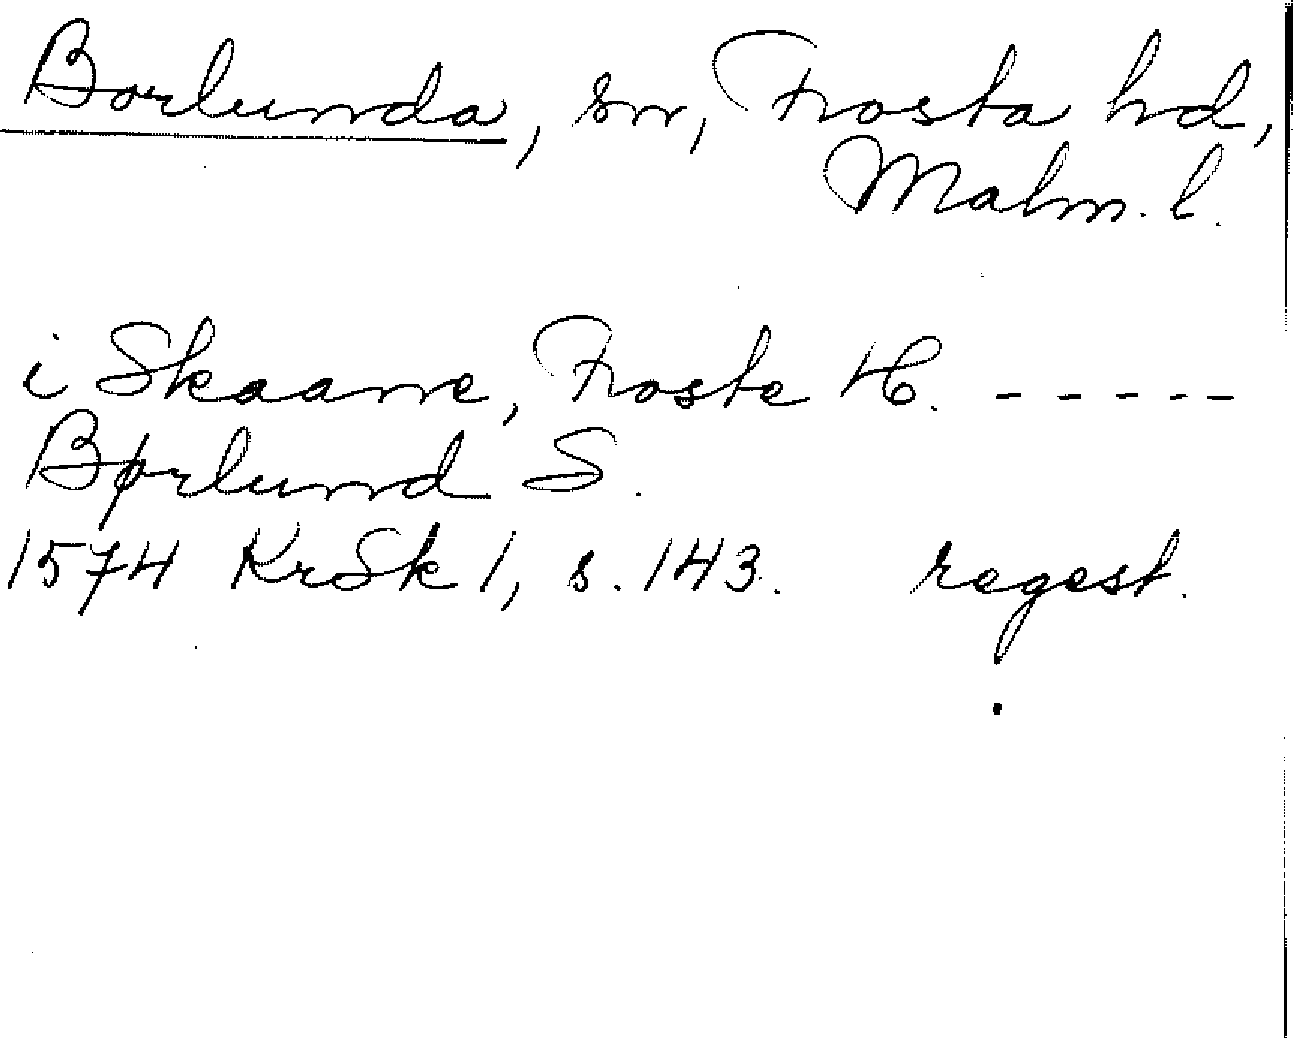 Borlunda, sn, Frosta hd,
Malm. l.
i Skaane, Froste H. - - - - -
Børlund S.
1574 KrSk 1, s. 143. regest.